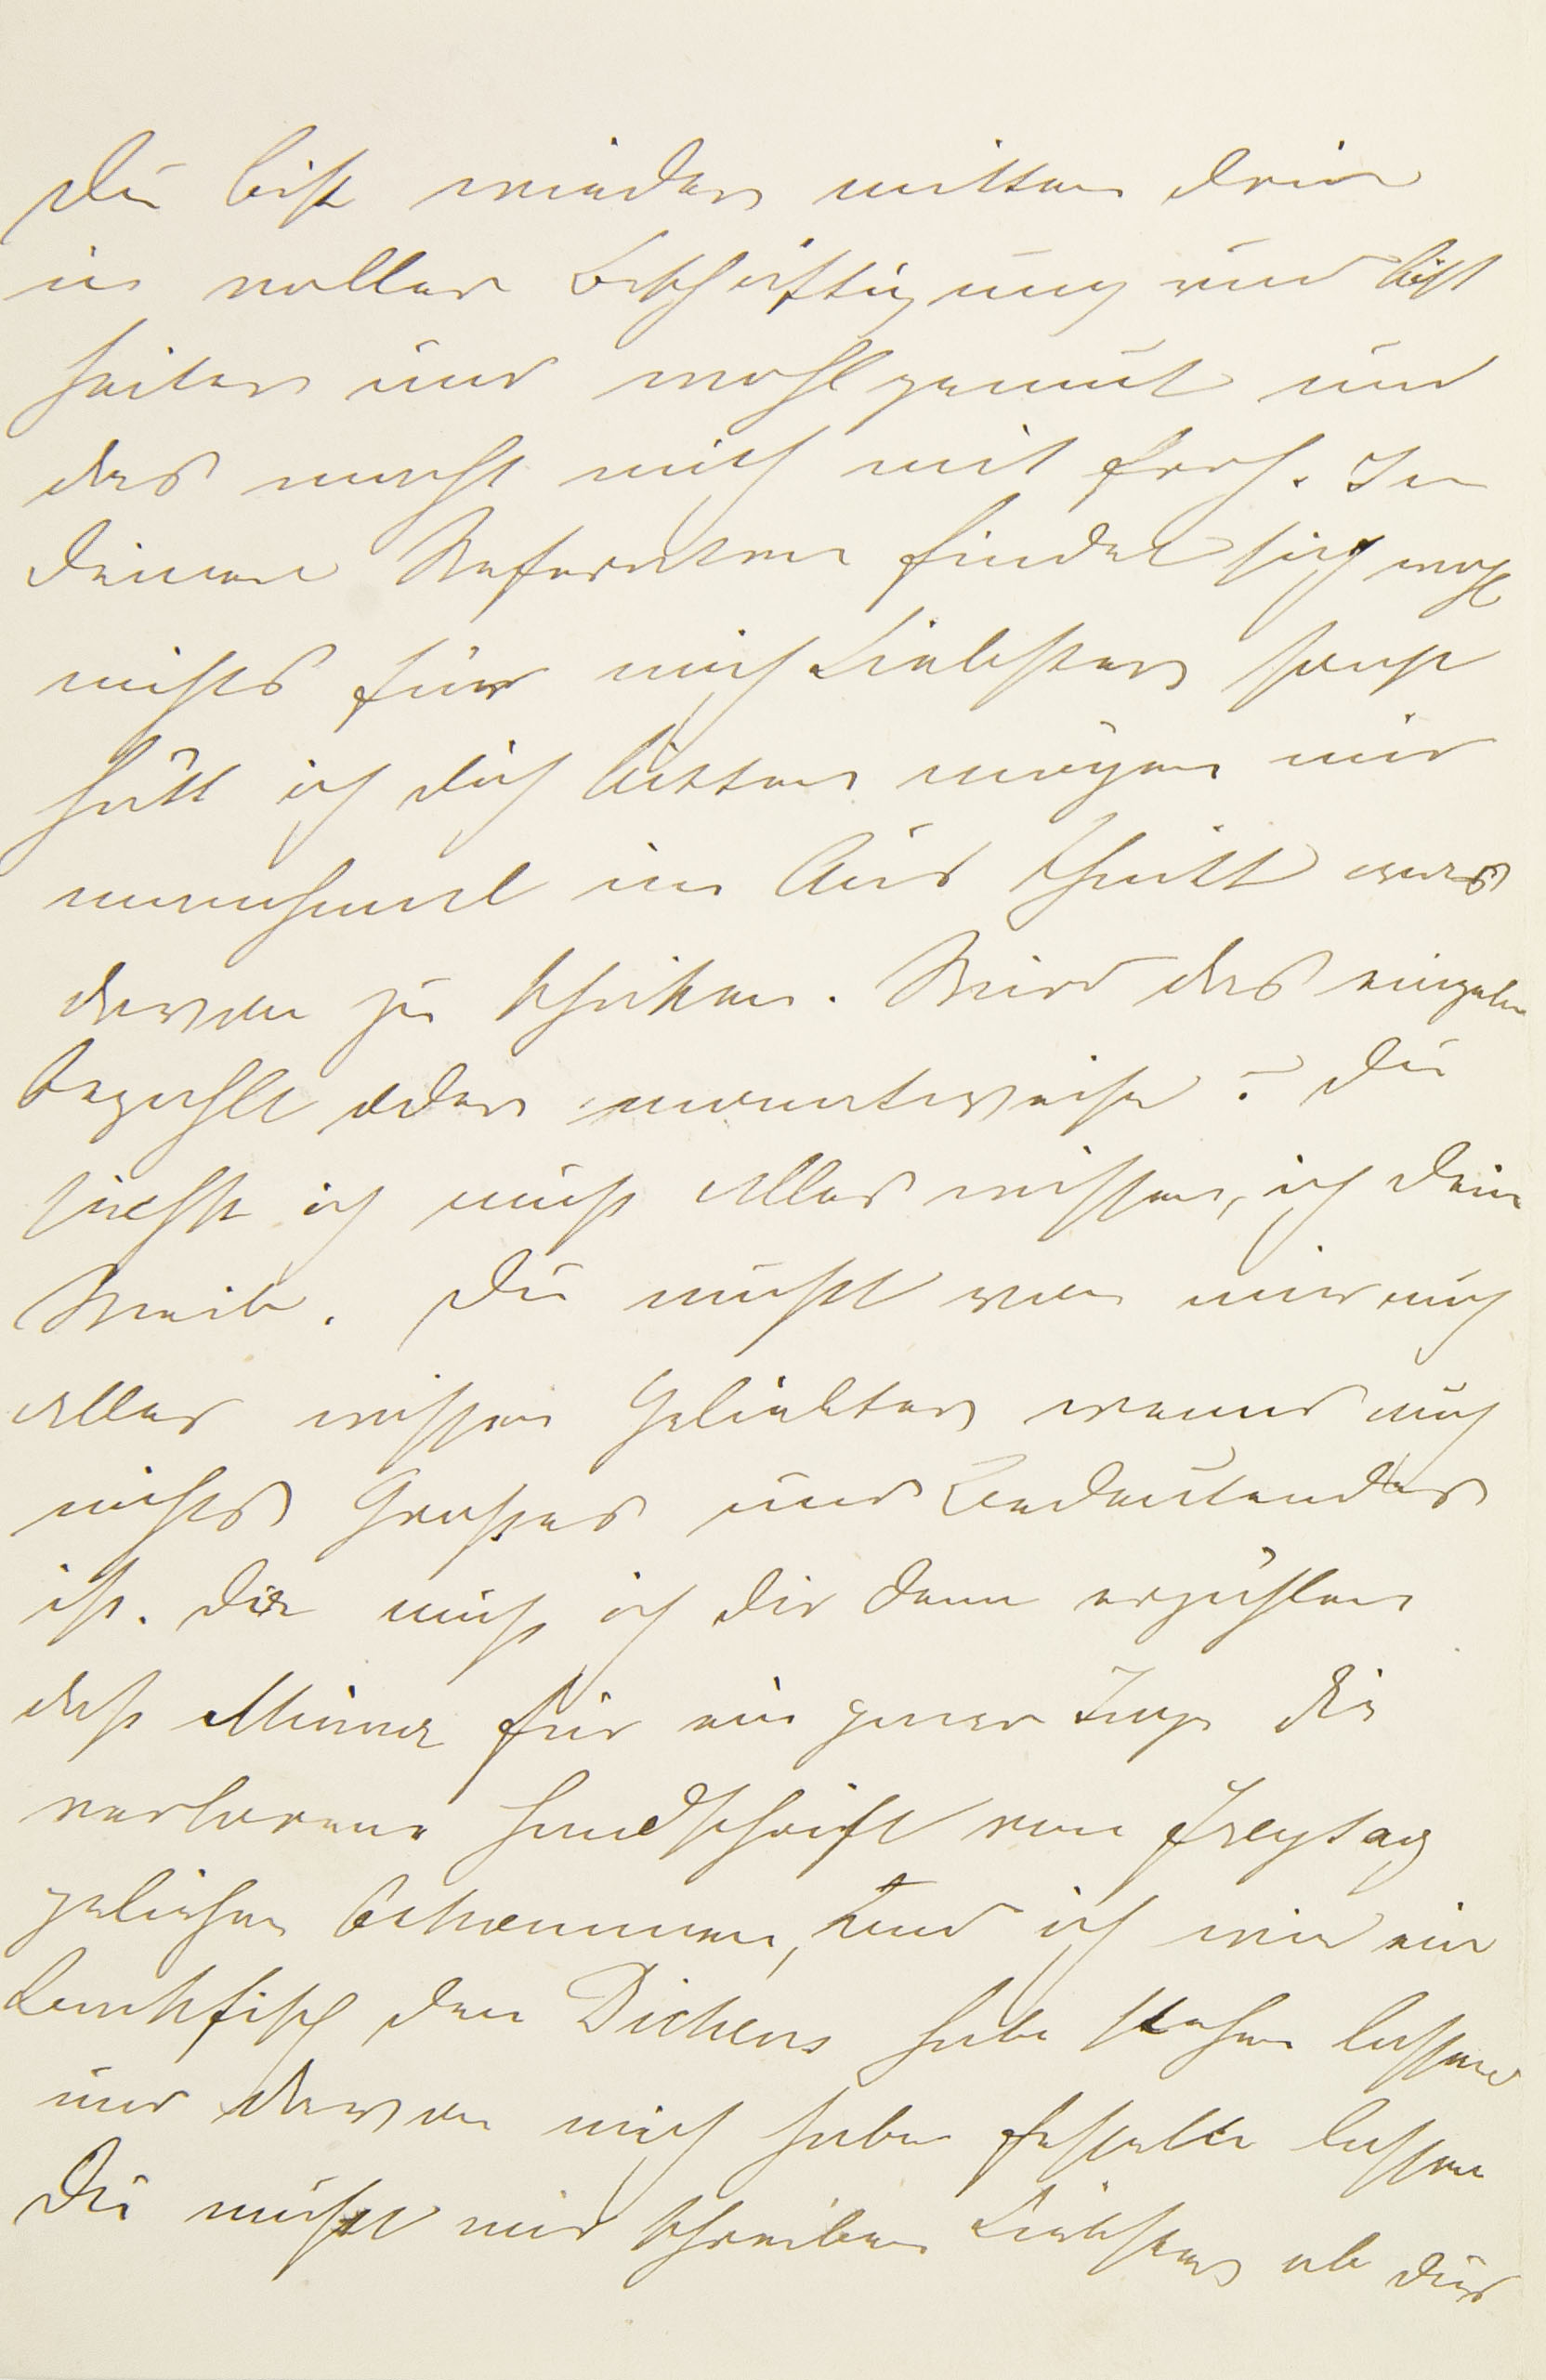 Du bist wieder mitten drin
in voller Beschäftigung und bist
heiter und wohlgemut und
das macht mich mit froh. In
Deinen Referaten findet sich wohl
nichts für mich Liebster sonst
hätt ich dich bitten mögen mir
manchmal im Ausschnitt was
davon zu schicken. Wird das einzeln
bezahlt oder monatweise? Du
siehst ich muß Alles wissen, ich Dein
Weib. Du mußt von mir auch
Alles wissen Geliebter wenns auch
nichts Großes und Bedeutendes
ist. Da muß ich dir denn erzählen
daß Minna für ein paar Tage die
verlorene Handschrift von Freytag
geliehen bekommen, und ich wie ein
Backfisch den Dickens habe stehen lassen
und davon mich habe fesseln lassen
Du mußt mir schreiben Liebster ob Dus